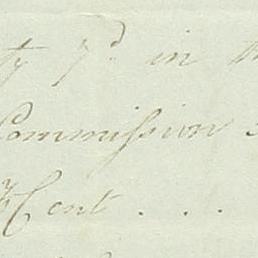 ty 7d in th
Commission
Cent . . .